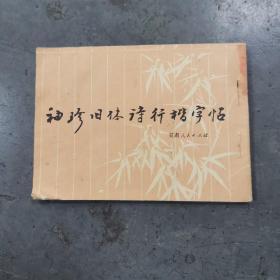 袖珍旧体诗行楷字帖
安徽人民出版社